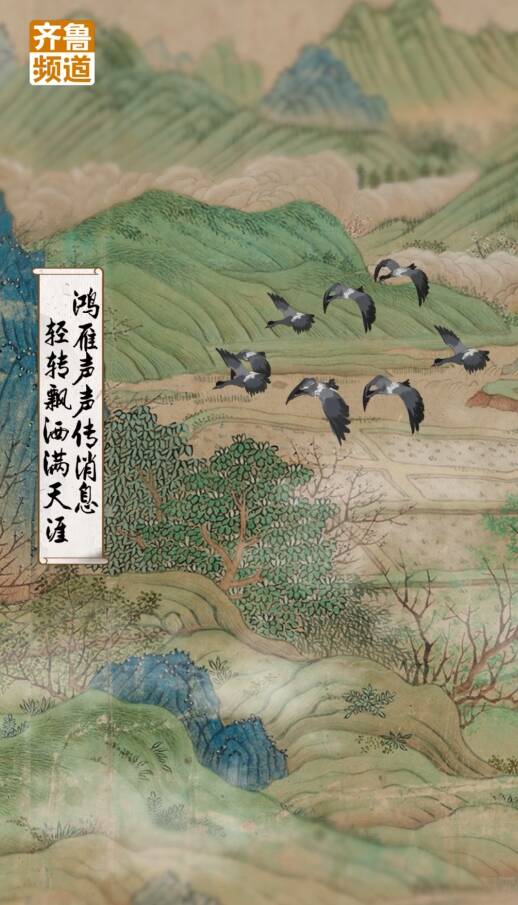 齐鲁
频道
鸿雁声声传消息
轻转飘洒满天涯